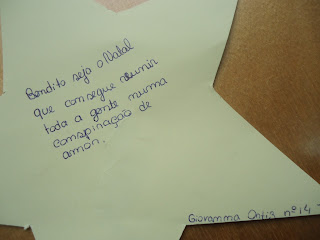 Bendito seja o Natal
que consegue reunir
toda a gente numa
conspiração de
amor.
Giovanna Ortiz nº14